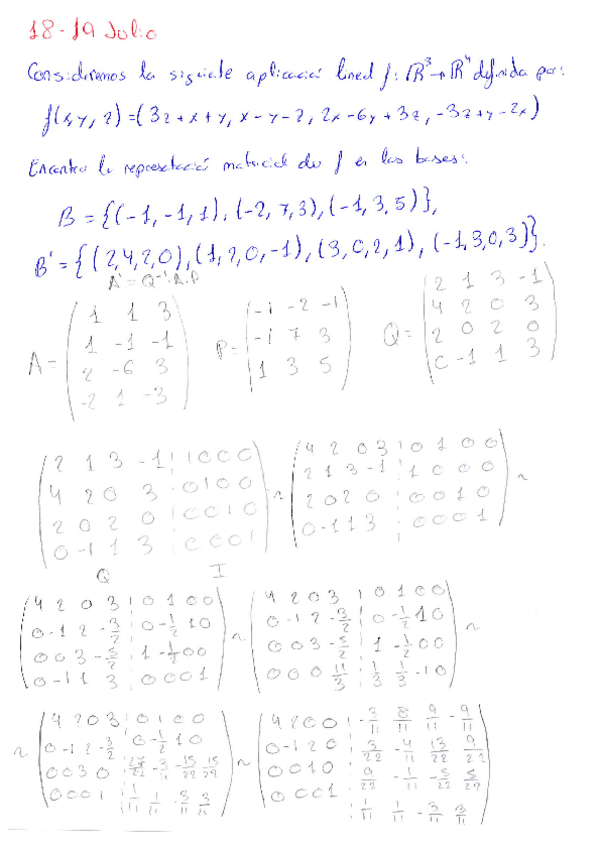 18-19 Julio
Consideremos la siguiente aplicación lineal f: ℝ³→ℝ⁴ definida por:
f(x,y,z)=(3z+x+y, x-y-z, 2x-6y+3z, -3z+y-2x)
Encontrar la representación matricial de f en las bases:
B={(-1,-1,1),(-2,7,3),(-1,3,5)},
B'={(2,4,2,0),(1,2,0,-1),(3,0,2,1),(-1,3,0,3)}.
A'=Q⁻¹·A·P
A= 1 1 3
1 -1 -1
2 -6 3
-2 1 -3
P= -1 -2 -1
-1 7 3
1 3 5
Q= 2 1 3 -1
4 2 0 3
2 0 2 0
0 -1 1 3
2 1 3 -1 | 1 0 0 0
4 2 0 3 | 0 1 0 0
2 0 2 0 | 0 0 1 0
0 -1 1 3 | 0 0 0 1
Q I
~
4 2 0 3 | 0 1 0 0
2 1 3 -1 | 1 0 0 0
2 0 2 0 | 0 0 1 0
0 -1 1 3 | 0 0 0 1
~
4 2 0 3 | 0 1 0 0
0 -1 2 -3/2 | 0 -1/2 1 0
0 0 3 -5/2 | 1 -1/2 0 0
0 -1 1 3 | 0 0 0 1
~
4 2 0 3 | 0 1 0 0
0 -1 2 -3/2 | 0 -1/2 1 0
0 0 3 -5/2 | 1 -1/2 0 0
0 0 0 11/3 | 1/3 1/3 -1 0
~
~
4 2 0 3 | 0 1 0 0
0 -1 2 -3/2 | 0 -1/2 1 0
0 0 3 0 | 27/22 -3/11 -15/22 15/22
0 0 0 1 | 1/11 1/11 -3/11 3/11
~
4 2 0 0 | -3/11 8/11 9/11 -9/11
0 -1 2 0 | 3/22 -4/11 13/22 9/22
0 0 1 0 | 9/22 -1/11 -5/22 5/22
0 0 0 1 | 1/11 1/11 -3/11 3/11